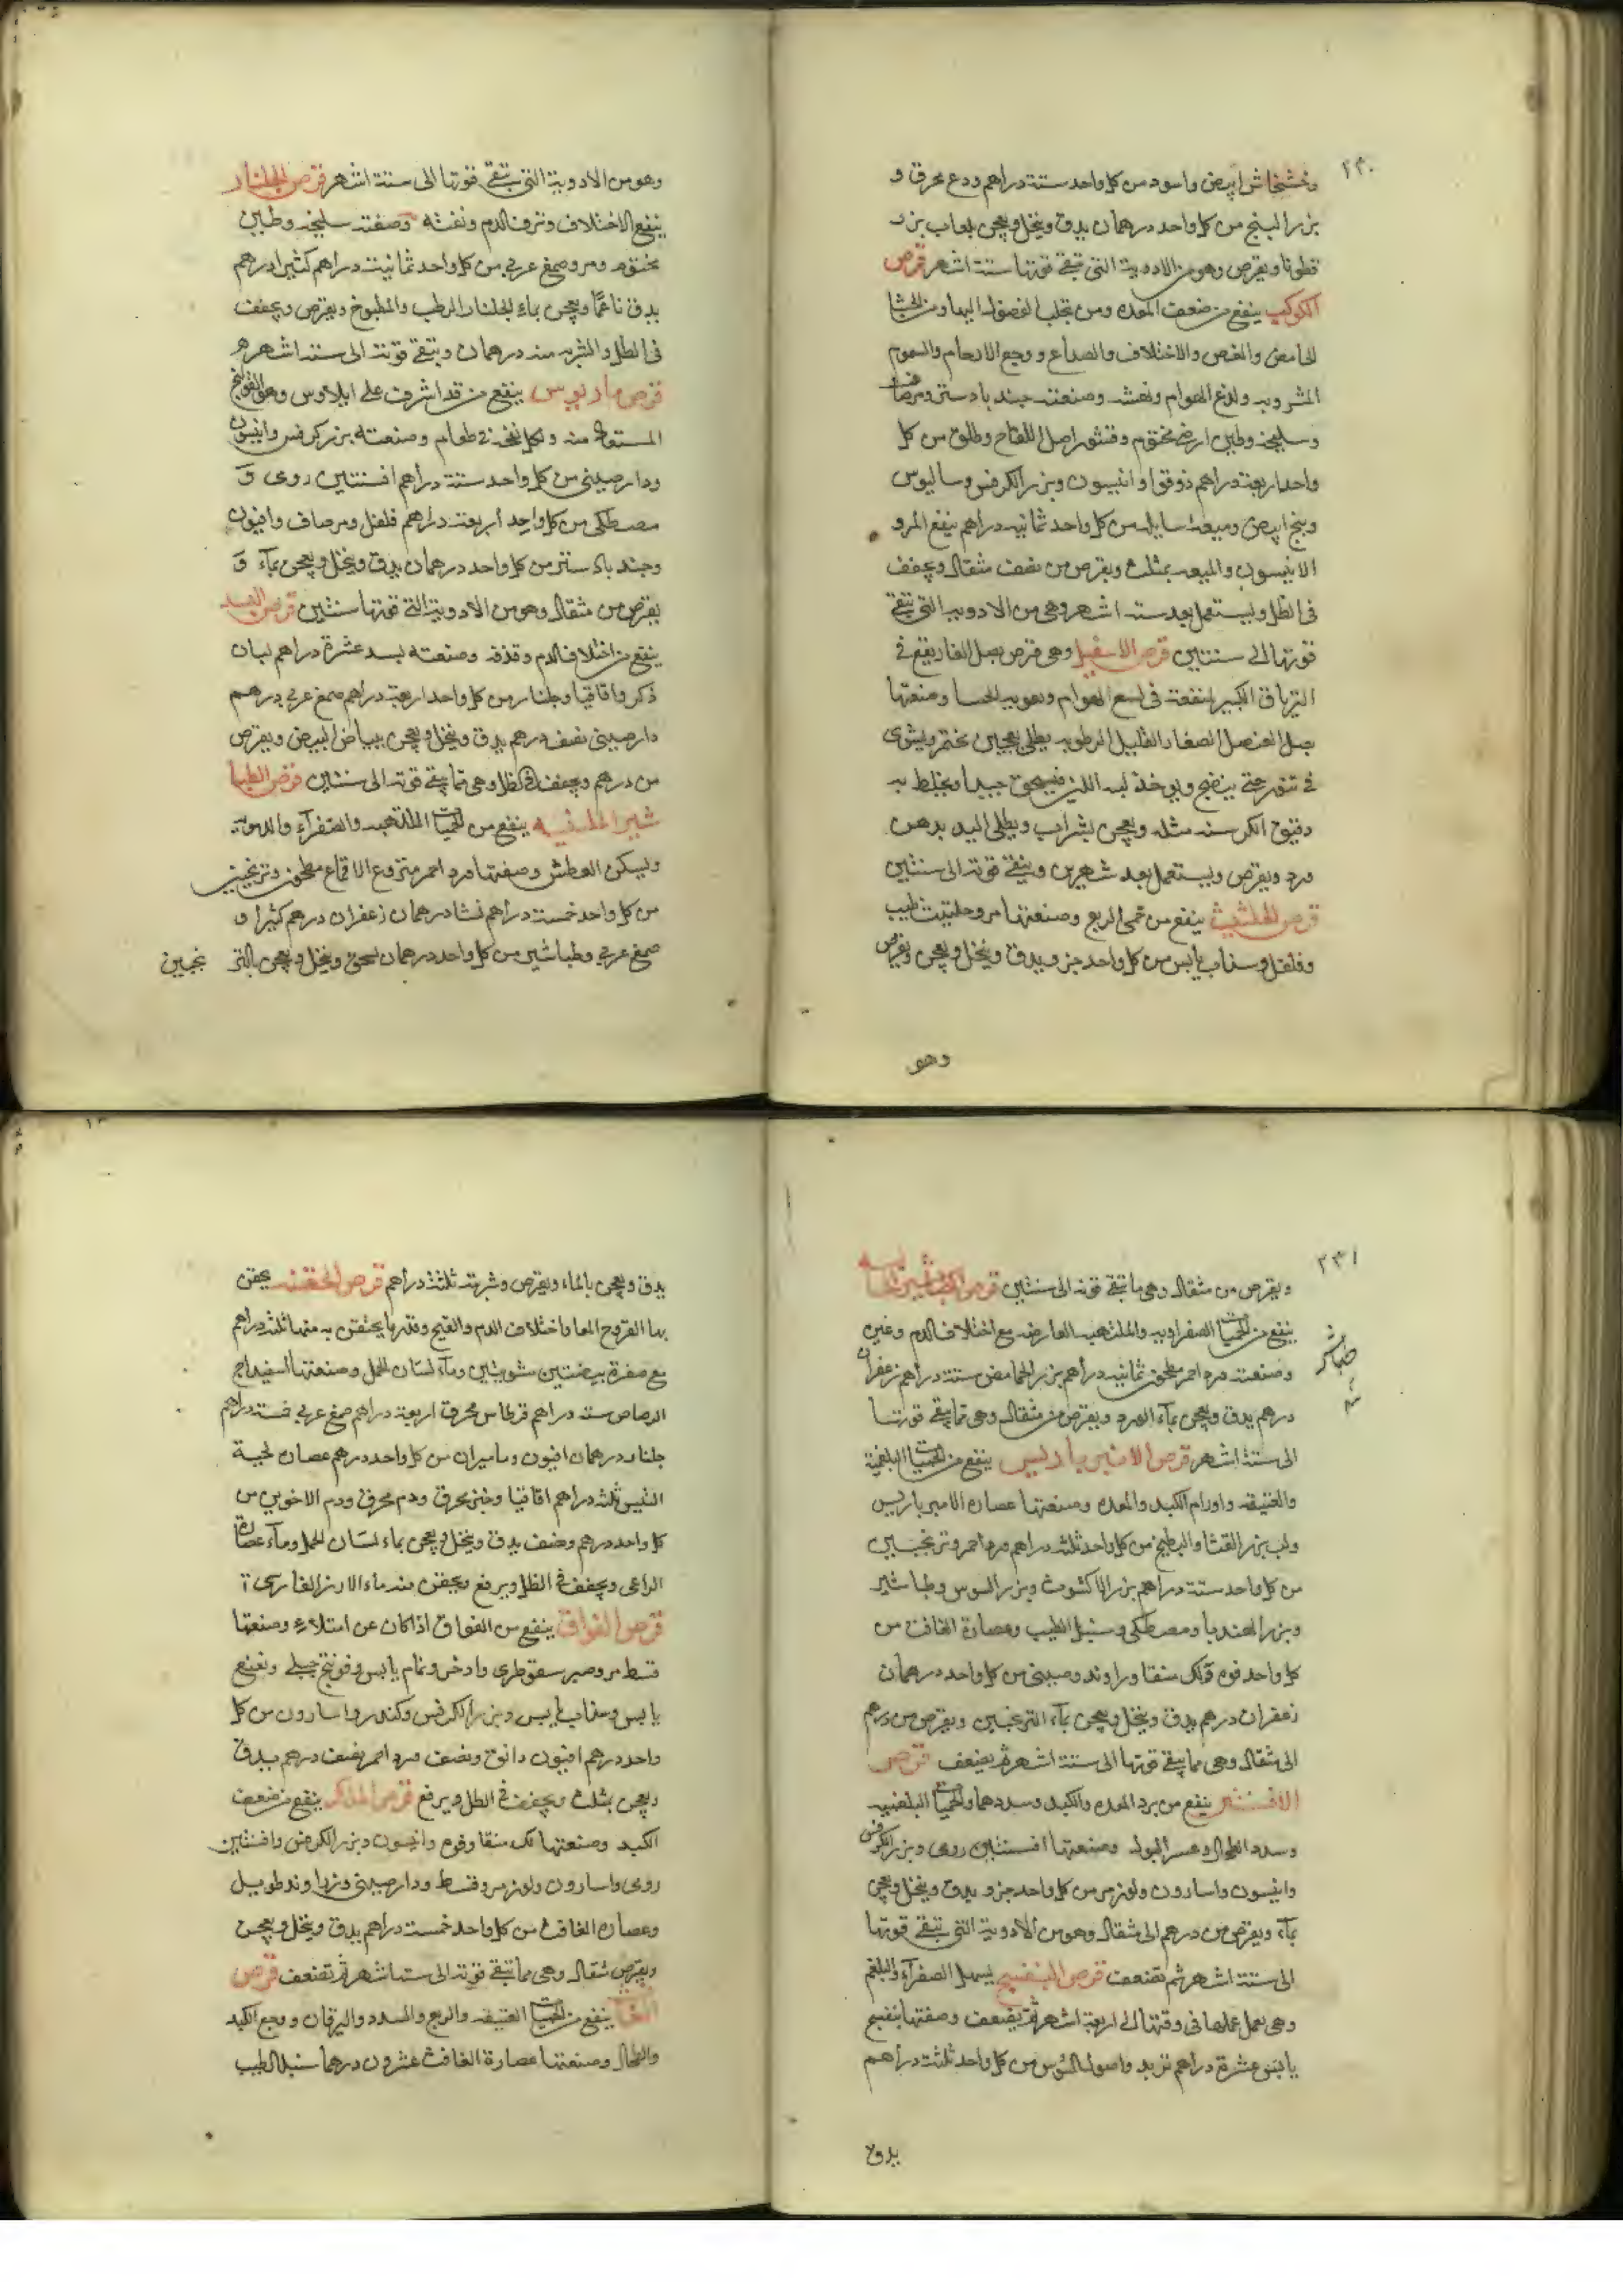 ٢٣٠
وخشخاش ابيض واسود من كل واحد ستة دراهم ودع محرق و
بزر البنج من كل واحد درهمان يدق وينخل ويعجن بلعاب بزر
قطونا ويقرص وهو من الادوية التى تبقى قوتها ستة اشهر قرص
الكوكب ينفع من ضعف المعده ومن تجلب الفضول اليها ومن الجشا
الحامض والمغص والاختلاف والصداع ووجع الارحام والسموم
المشروبه ولدغ الهوام ونهشه وصنعته جند بادستر ومر صاف
وسليخه وطين ارض مختوم وقشور اصل اللفاح وطلق من كل
واحد اربعة دراهم ذوقوا وانيسون وبزر الكرفس وساليوس
وبنج ابيض وميعه سايله من كل واحد ثمانيه دراهم ينقع المر و
الانيسون والميعه بمثلث ويقرص من نصف مثقال ويجفف
فى الظل ويستعمل بعد ستة اشهر وهى من الادويه التى تبقى
قوتها الى سنتين قرص الاسقيل وهى قرص بصل الفار يقع فى
الترياق الكبير لمنفعته فى لسع الهوام وصنعتها
بصل العنصل الصغار القليل الرطوبه يطلى بعجين مختمر ويشوى
فى تنور حتى ينضج ويوخذ لبه اللين فيسحق جيدا ويخلط به
دقيق الكرسنه مثله ويعجن بشراب ويطلى اليد بدهن
ورد ويقرص ويستعمل بعد شهرين وتبقى قوته الى سنتين
قرص الحلتيت ينفع من حمى الربع وصنعتها مر وحلتيت طيب
وفلفل وسذاب يابس من كل واحد جزو يدق وينخل ويعجن ويقرص
وهو
وهو من الادوية التى تبقى قوتها الى ستة اشهر قرص الجلنار
ينفع الاختلاف ونزف الدم ونفثه وصفته سليخه وطين
مختوم ومر وصمغ عربى من كل واحد ثمانية دراهم كثيرا درهم
يدق ناعما ويعجن بماء الجلنار الرطب والمطبوخ ويقرص ويجفف
فى الظل والشربه منه درهمان وتبقى قوته الى ستة اشهر
قرص ماريوس ينفع من قد اشرف على ايلاوس وهو القولنج
المستعاذ منه وصنعته بزر كرفس وانيسون
ودارصينى من كل واحد ستة دراهم افسنتين رومى و
مصطكى من كل واحد اربعة دراهم فلفل ومر صاف وافيون
وجند بادستر من كل واحد درهمان يدق وينخل ويعجن بماء و
يقرص من مثقال وهو من الادوية التى قوتها سنتين قرص البسد
ينفع من اختلاف الدم وقذفه وصنعته بسد عشرة دراهم لبان
ذكر واقاقيا وجلنار من كل واحد اربعة دراهم صمغ عربى درهم
دارصينى نصف درهم يدق وينخل ويعجن ببياض البيض ويقرص
من درهم ويجفف فى الظل وهى مما يبقى قوته الى سنتين قرص الطبا
شير الملينه ينفع من الحميات الملتهبه والصفرآء والدموية
ويسكن العطش وصفتها ورد احمر منزوع الاقماع مطحون وترنجبين
من كل واحد خمسة دراهم نشا درهمان زعفران درهم كثيرا و
صمغ عربى وطباشير من كل واحد درهمان يسحق وينخل ويعجن بالتر نجبين
٢٣١
ويقرص من مثقال وهى ما تبقى قوته الى سنتين قرص
ينفع من الحميات الصفراويه والملتهبه العارضه مع اختلاف الدم وغيره
وصنعته ورد احمر مطحون ثمانيه دراهم بزر الحماض ستة دراهم زعفران
درهم يدق ويعجن بمآء الورد ويقرص من مثقال وهى مما يبقى قوتها
الى ستة اشهر قرص الامبرباريس ينفع من الحميات البلغمية
والعتيقه واورام الكبد والمعده وصنعتها عصاره الامبرباريس
ولب بزر القثا والبطيخ من كل واحد ثلثه دراهم ورد احمر وترنجبين
من كل واحد ستة دراهم بزر الاكشوث وبزر السوس وطباشير
وبزر الهندبا ومصطكى وسنبل الطيب وعصارة الغافت من
كل واحد فوه ولك منقا وراوند صينى من كل واحد درهمان
زعفران درهم يدق وينخل ويعجن بمآء الترنجبين ويقرص من درهم
الى مثقال وهى مما يبقى قوتها الى ستة اشهر ثم يضعف قرص
الافسنتين ينفع من برد المعده والكبد وسددهما والحميات البلغميه
وسدد الطحال وعسر البول وصنعتها افسنتين رومى وبزر الكرفس
وانيسون واسارون ولوز مر من كل واحد جزو يدق وينخل ويعجن
بمآء ويقرص من درهم الى مثقال وهو من الادوية التى تبقى قوتها
الى ستة اشهر ثم تضعف قرص البنفسج يسهل الصفرآء والبلغم
وهى يعمل عملها فى وقتها الى اربعة اشهر ثم يضعف وصفتها بنفسج
يابس عشرة دراهم تربد واصول السوس من كل واحد ثلثة دراهم
يدق
يدق ويعجن بالماء ويقرص وشربته ثلثة دراهم قرص الحقنه يحقن
بها القروح المعا واختلاف الدم والقيح وقدر ما يحتقن به منها ثلثه دراهم
مع صفرة بيضتين مشويتين ومآء لسان الحمل وصنعتها اسفيداج
الرصاص ستة دراهم قرطاس محرق اربعة دراهم صمغ عربى خمسة دراهم
جلنار درهمان افيون وماميران من كل واحد درهم عصارة لحية
التيس ثلثه دراهم اقاقيا محرق ودم محرق ودم الاخوين من
كل واحد درهم ونصف يدق وينخل ويعجن بماء لسان الحمل ومآء عصاة
الراعى ويجفف فى الظل ويرفع ويحقن منه ماء الارز الفارسى
قرص الفواق ينفع من الفواق اذا كان عن امتلاء وصنعتها
قسط مر وصبر سقوطرى واذخر ونمام يابس وفوتنج جبلى ونعنع
يابس وسذاب يابس وبزر الكرفس وكندر واسارون من كل
واحد درهم افيون دانق ونصف ورد احمر نصف درهم يدق
ويعجن بمثلث ويجفف فى الظل ويرفع قرص اللك ينفع من ضعف
الكبد وصنعتها لك منقا وفوه وانيسون وبزر الكرفس وافسنتين
رومى واسارون ولوز مر وقسط ودارصينى وزراوند طويل
وعصاره الغافت من كل واحد خمسة دراهم يدق وينخل ويعجن
ويقرص مثقال وهى مما تبقى قوته الى ستة اشهر ثم تضعف قرص
الغافت ينفع من الحميات العتيقه والربع والسدد واليرقان ووجع الكبد
والطحال وصنعتها عصارة الغافت عشرون درهما سنبل الطيب